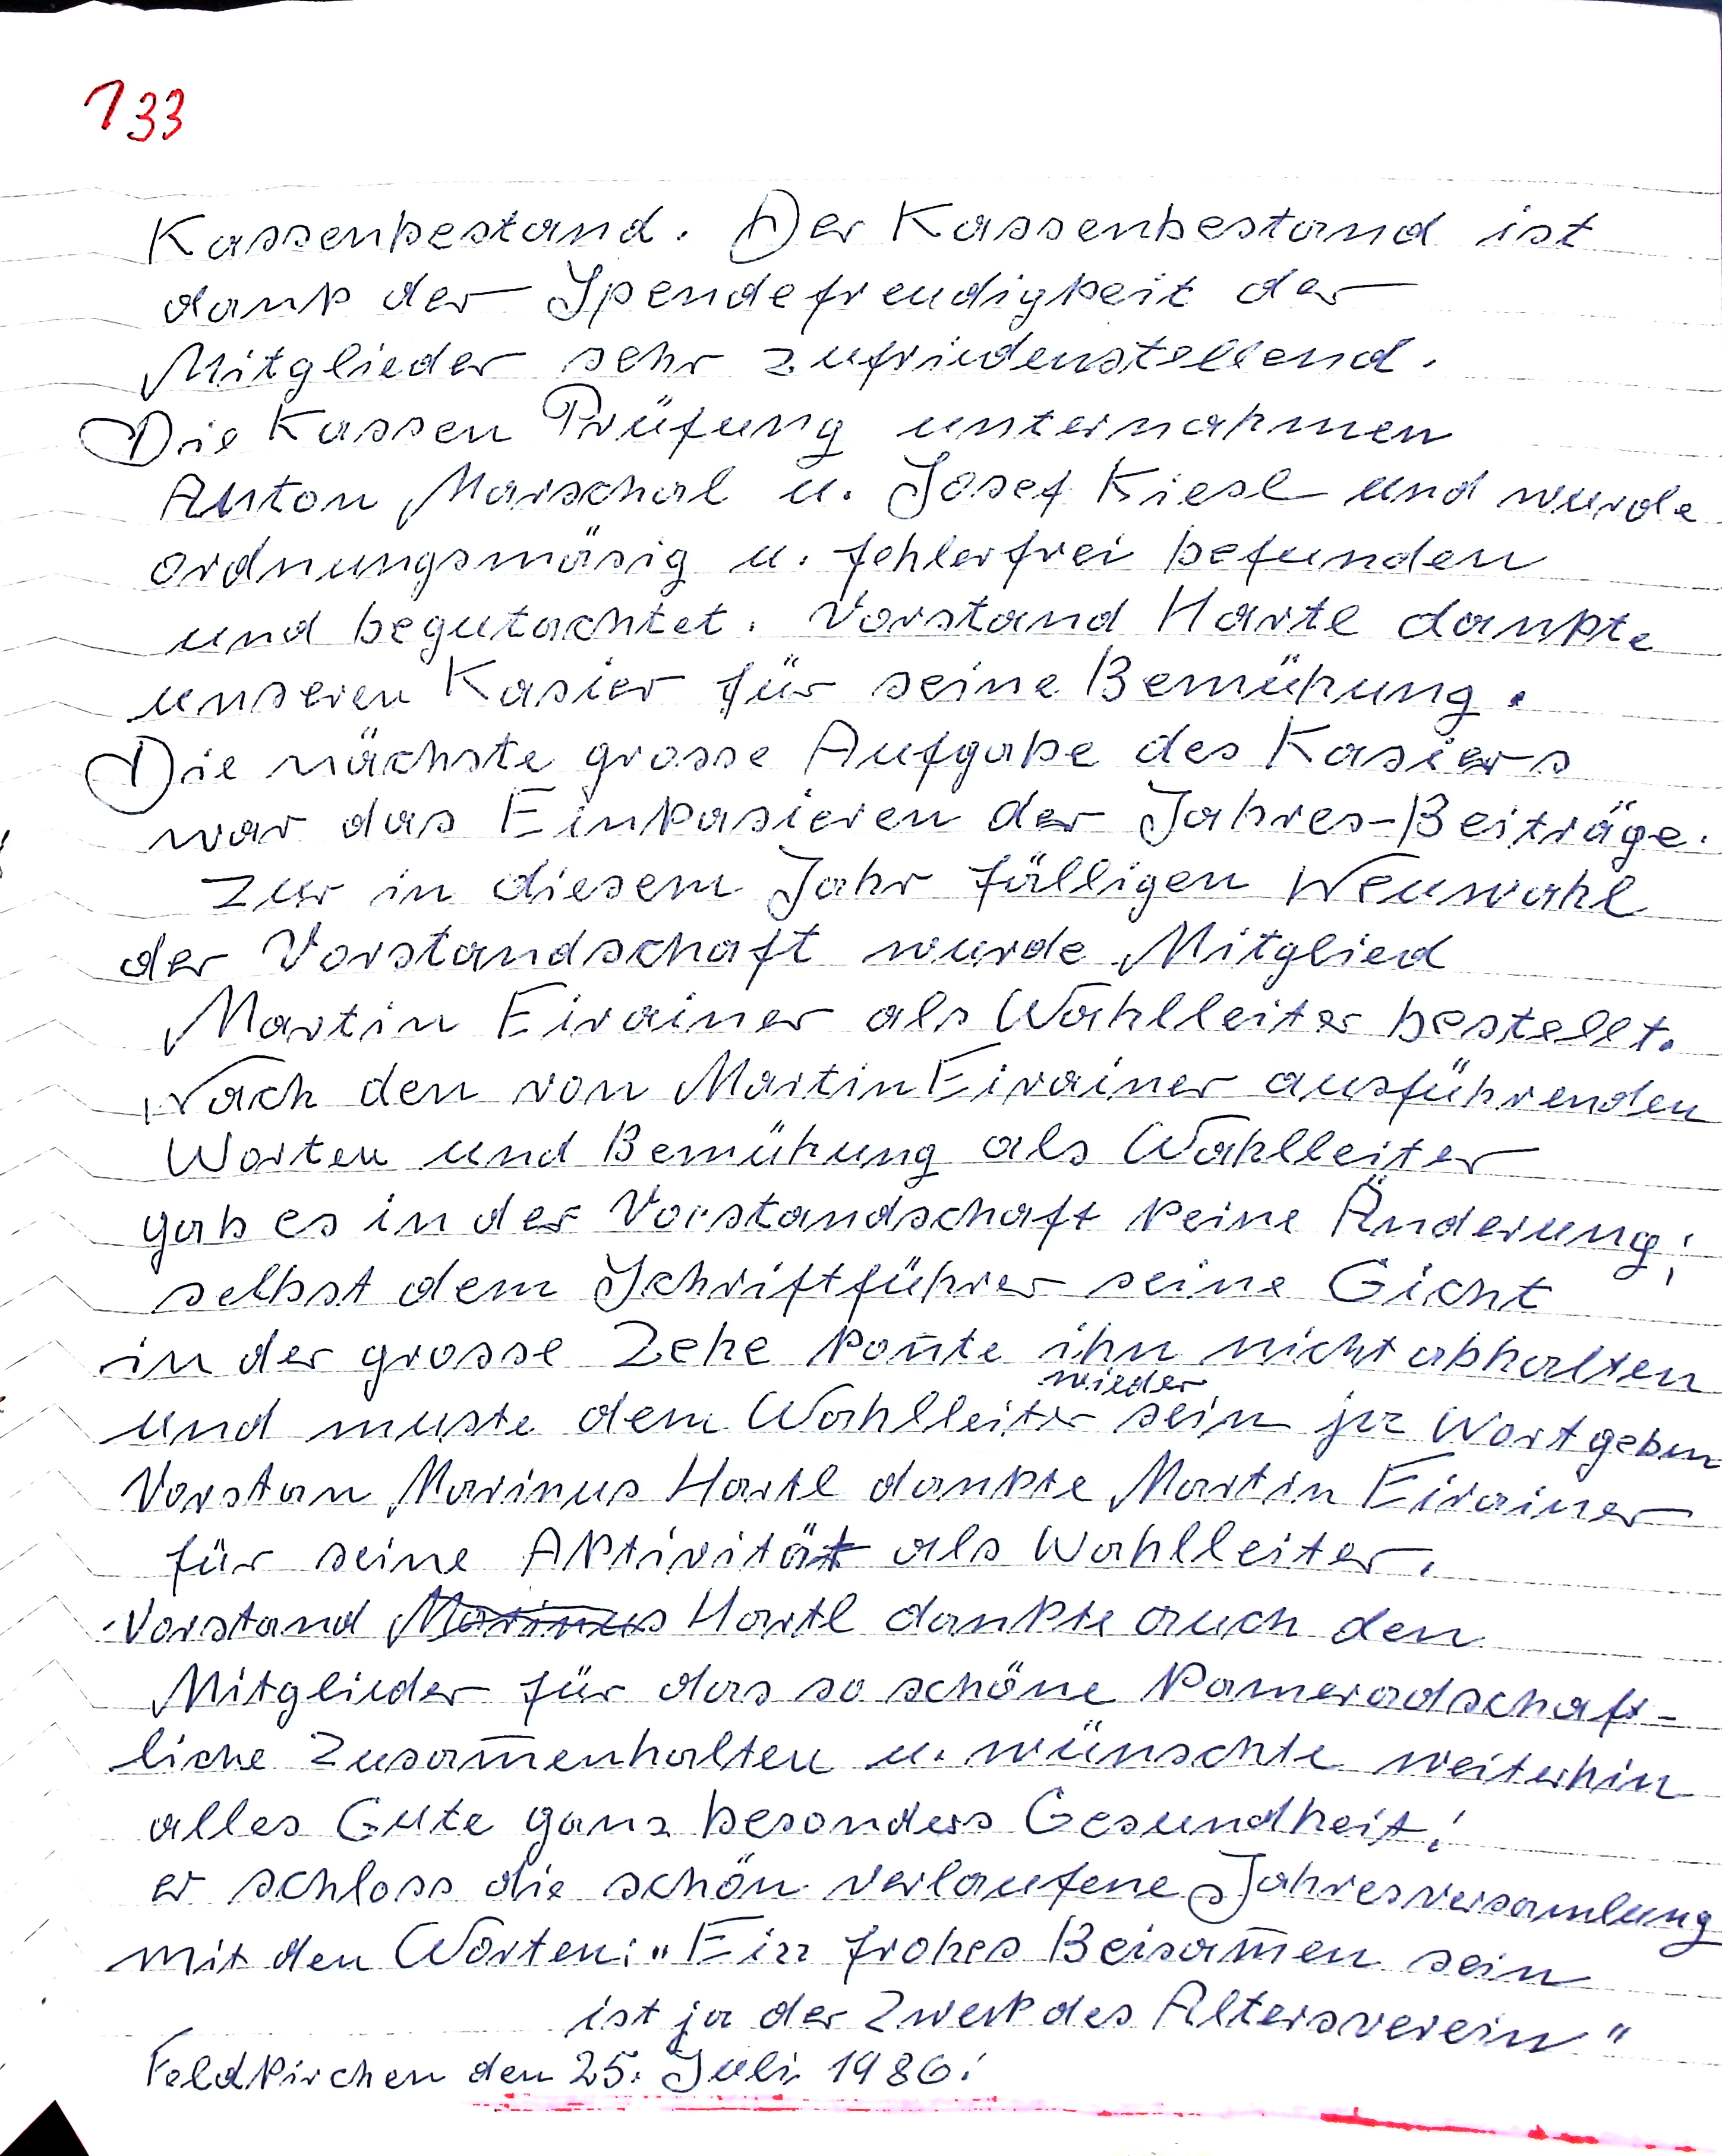 133
Kassenbestand. Der Kassenbestand ist
dank der Spendefreudigkeit der
Mitglieder sehr zufriedenstellend.
Die Kassen Prüfung unternahmen
Anton Marschal u. Josef Kiesl und wurde
ordnungsmäsig u. fehlerfrei befunden
und begutachtet. Vorstand Hartl dankte
unseren Kasier für seine Bemühung.
Die nächste grosse Aufgabe des Kasiers
war das Einkasieren der Jahres-Beiträge.
Zur in diesem Jahr fälligen Neuwahl
der Vorstandschaft wurde Mitglied
Martin Eirainer als Wahlleiter bestellt.
Nach den von Martin Eirainer ausführenden
Worten und Bemühung als Wahlleiter
gab es in der Vorstandschaft keine Änderung;
selbst dem Schriftführer seine Gicht
in der grosse Zehe kon̄te ihn nicht abhalten
wieder
und muste dem Wahlleiter sein ja Wort geben
Vorstan Marinus Hartl dankte Martin Eirainer
für seine Aktivität als Wahlleiter.
Vorstand Marinus Hartl dankte auch den
Mitglieder für das so schöne kameradschaft-
liche Zusam̄enhalten u. wünschte weiterhin
alles Gute ganz besonders Gesundheit!
er schloss die schön verlaufene Jahresversamlung
mit den Worten: "Ein frohes Beisam̄en sein
ist ja der Zwek des Altersverein"
Feldkirchen den 25. Juli 1986!